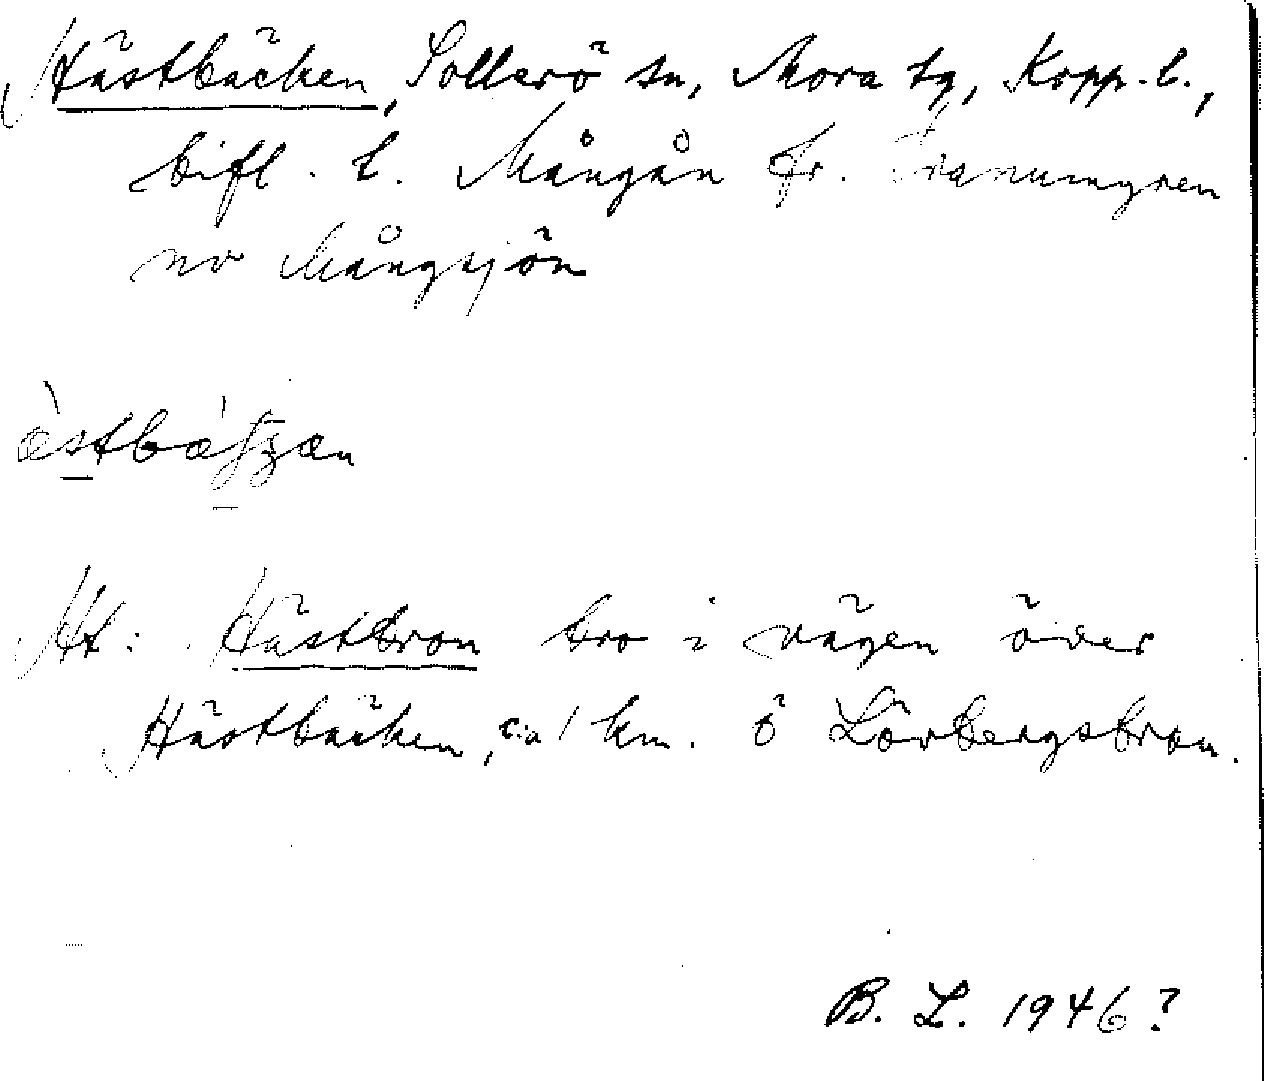 Hästbäcken, Sollerö sn, Mora tg, Kopp. l.,
bifl. t. Mångån fr. Tranumyren
nv Mångsjön
Att: Hästbron bro i vägen över
Hästbäcken, ca 1 km. ö Lövbergsbron.
B. L. 1946?